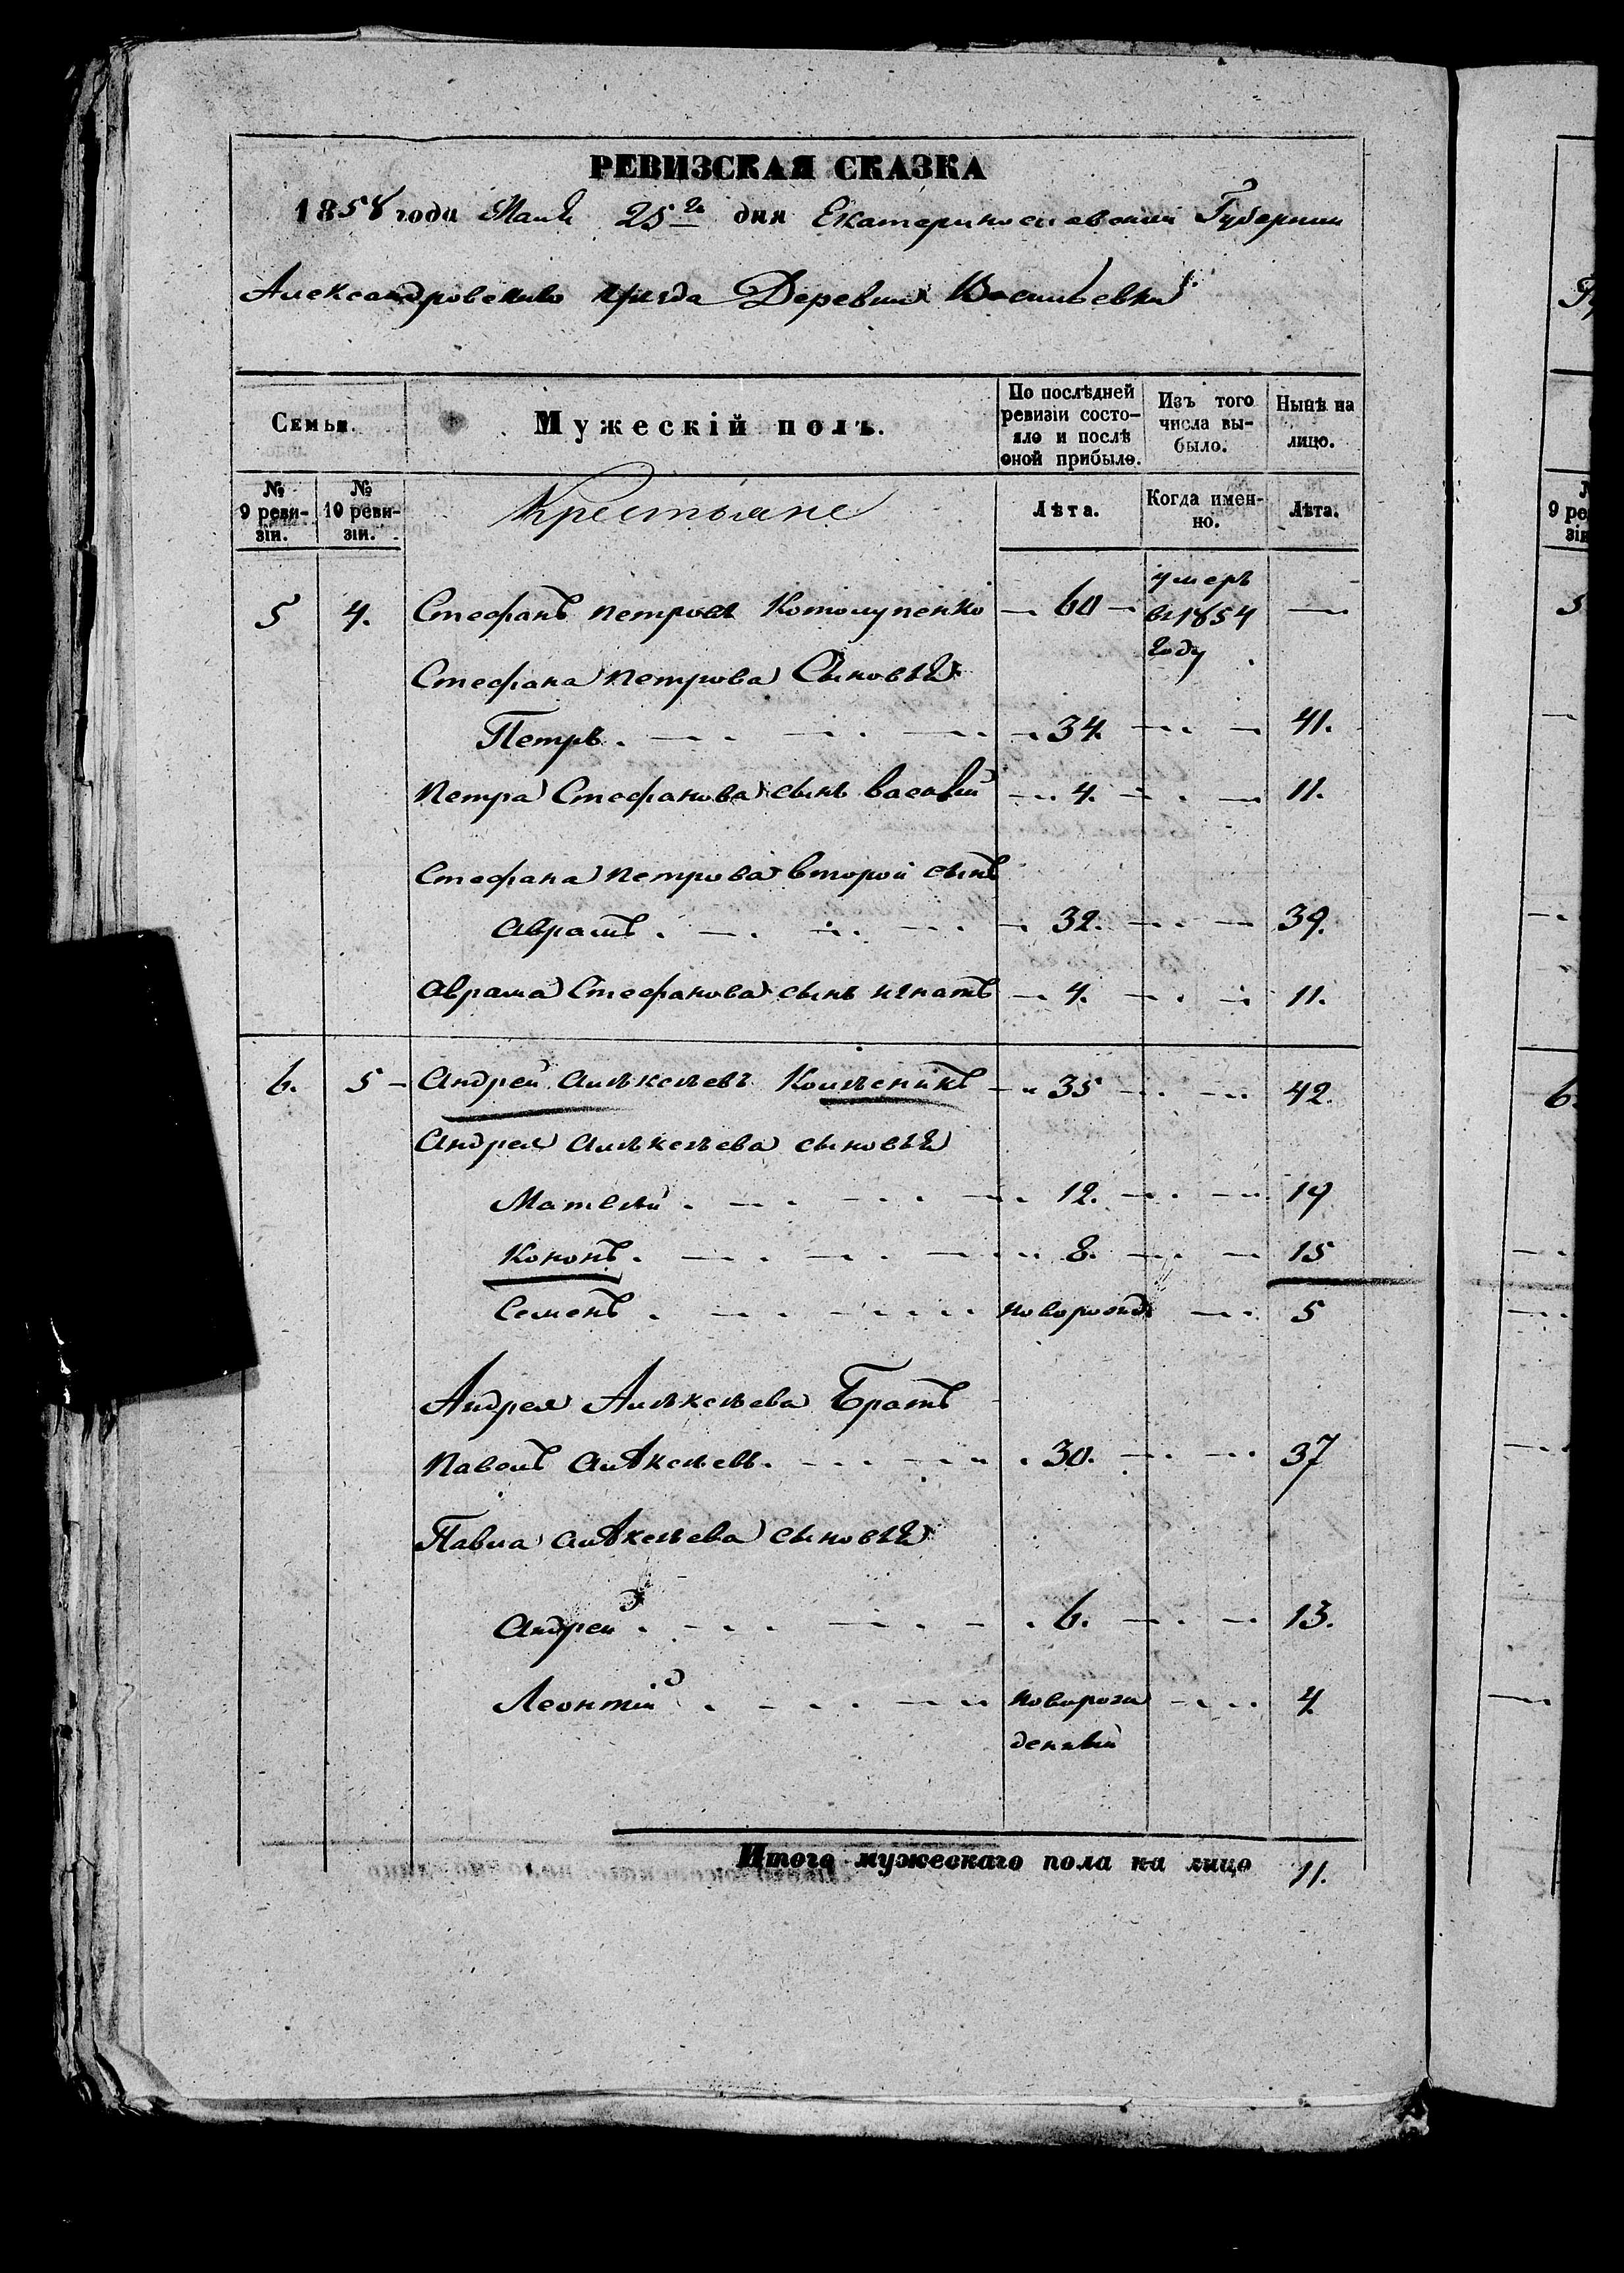 РЕВИЗСКАЯ СКАЗКА
1858 года Маія 25го дня Екатеринославской Губерніи
Александровскаго уѣзда Деревни Васильевки
Семьи.
Мужескій полъ.
По послѣдней ревизіи состояло и послѣ оной прибыло.
Изъ того числа выбыло.
Нынѣ на лицо.
№ 9 ревизіи.
№ 10 ревизіи.
Крестьяне
Лѣта.
Когда именно.
Лѣта.
5 4. Стефанъ Петровъ Котолупенко — 60 — умеръ въ 1854 году —
Стефана Петрова Сыновья
Петръ. 34. 41.
Петра Стефанова сынъ Василій 4. 11.
Стефана Петрова второй сынъ
Аврамъ. 32. 39.
Аврама Стефанова сынъ Игнатъ 4. 11.
6. 5 Андрей Алѣксѣевъ Колѣсникъ 35 42.
Андрея Алѣксѣева сыновья
Матвѣй. 12. 19
Кононъ. 8. 15
Семенъ. новорожд 5
Андрея Алѣксѣева Братъ
Павелъ Алѣксѣевъ. 30. 37
Павла Алѣксѣева сыновья
Андрей. 6. 13.
Леонтій. новорож
денный 4.
Итого мужескаго пола на лицо 11.